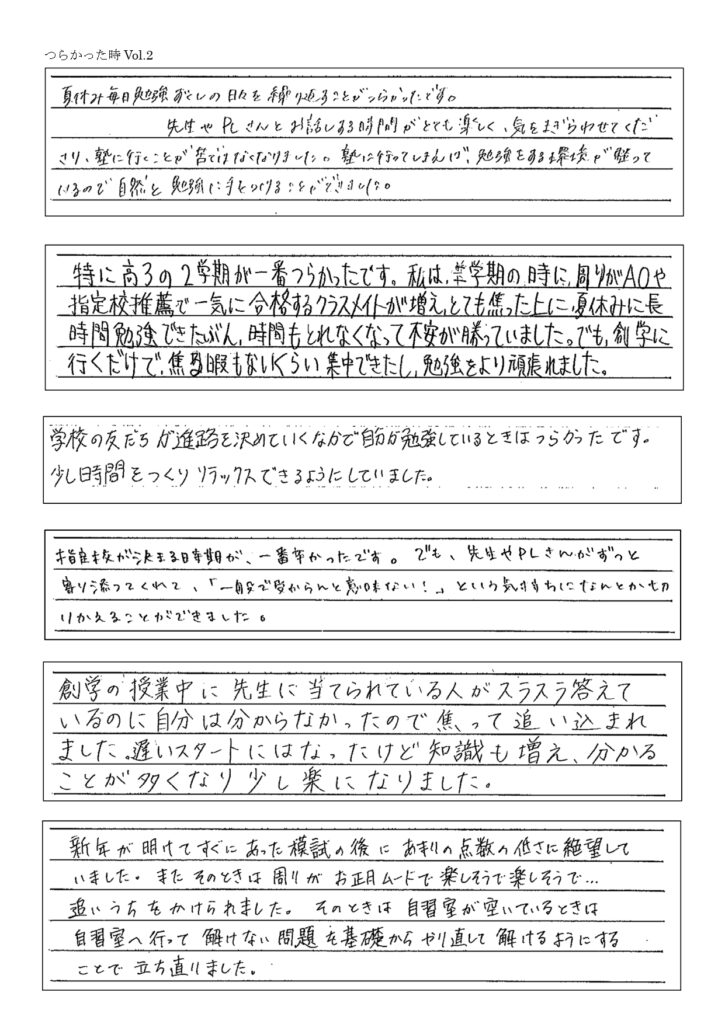 つらかった時 Vol.2
夏休み毎日勉強づくしの日々を繰り返すことがつらかったです。
先生やPLさんとお話しする時間がとても楽しく、気をまぎらわせてくだ
さり、塾に行くことが苦ではなくなりました。塾に行ってしまえば、勉強をする環境が整って
いるので自然と勉強に手をつけることができました。
特に高3の2学期が一番つらかったです。私は、学期の時に、周りがAOや
指定校推薦で一気に合格するクラスメイトが増え、とても焦った上に、夏休みに長
時間勉強できたぶん、時間もとれなくなって不安が勝っていました。でも、創学に
行くだけで、焦る暇もないくらい集中できたし、勉強をより頑張れました。
学校の友だちが進路を決めていくなかで自分が勉強しているときはつらかったです。
少し時間をつくりリラックスできるようにしていました。
指定校が決まる時期が、一番辛かったです。でも、先生やPLさんがずっと
寄り添ってくれて、「一般で受からんと意味ない!」という気持ちになんとか切
りかえることができました。
創学の授業中に先生に当てられている人がスラスラ答えて
いるのに自分は分からなかったので焦って追い込まれ
ました。遅いスタートにはなったけど知識も増え、分かる
ことが多くなり少し楽になりました。
新年が明けてすぐにあった模試の後にあまりの点数の低さに絶望して
いました。またそのときは周りがお正月ムードで楽しそうで楽しそうで…
追いうちをかけられました。そのときは自習室が空いているときは
自習室へ行って解けない問題を基礎からやり直して解けるようにする
ことで立ち直りました。